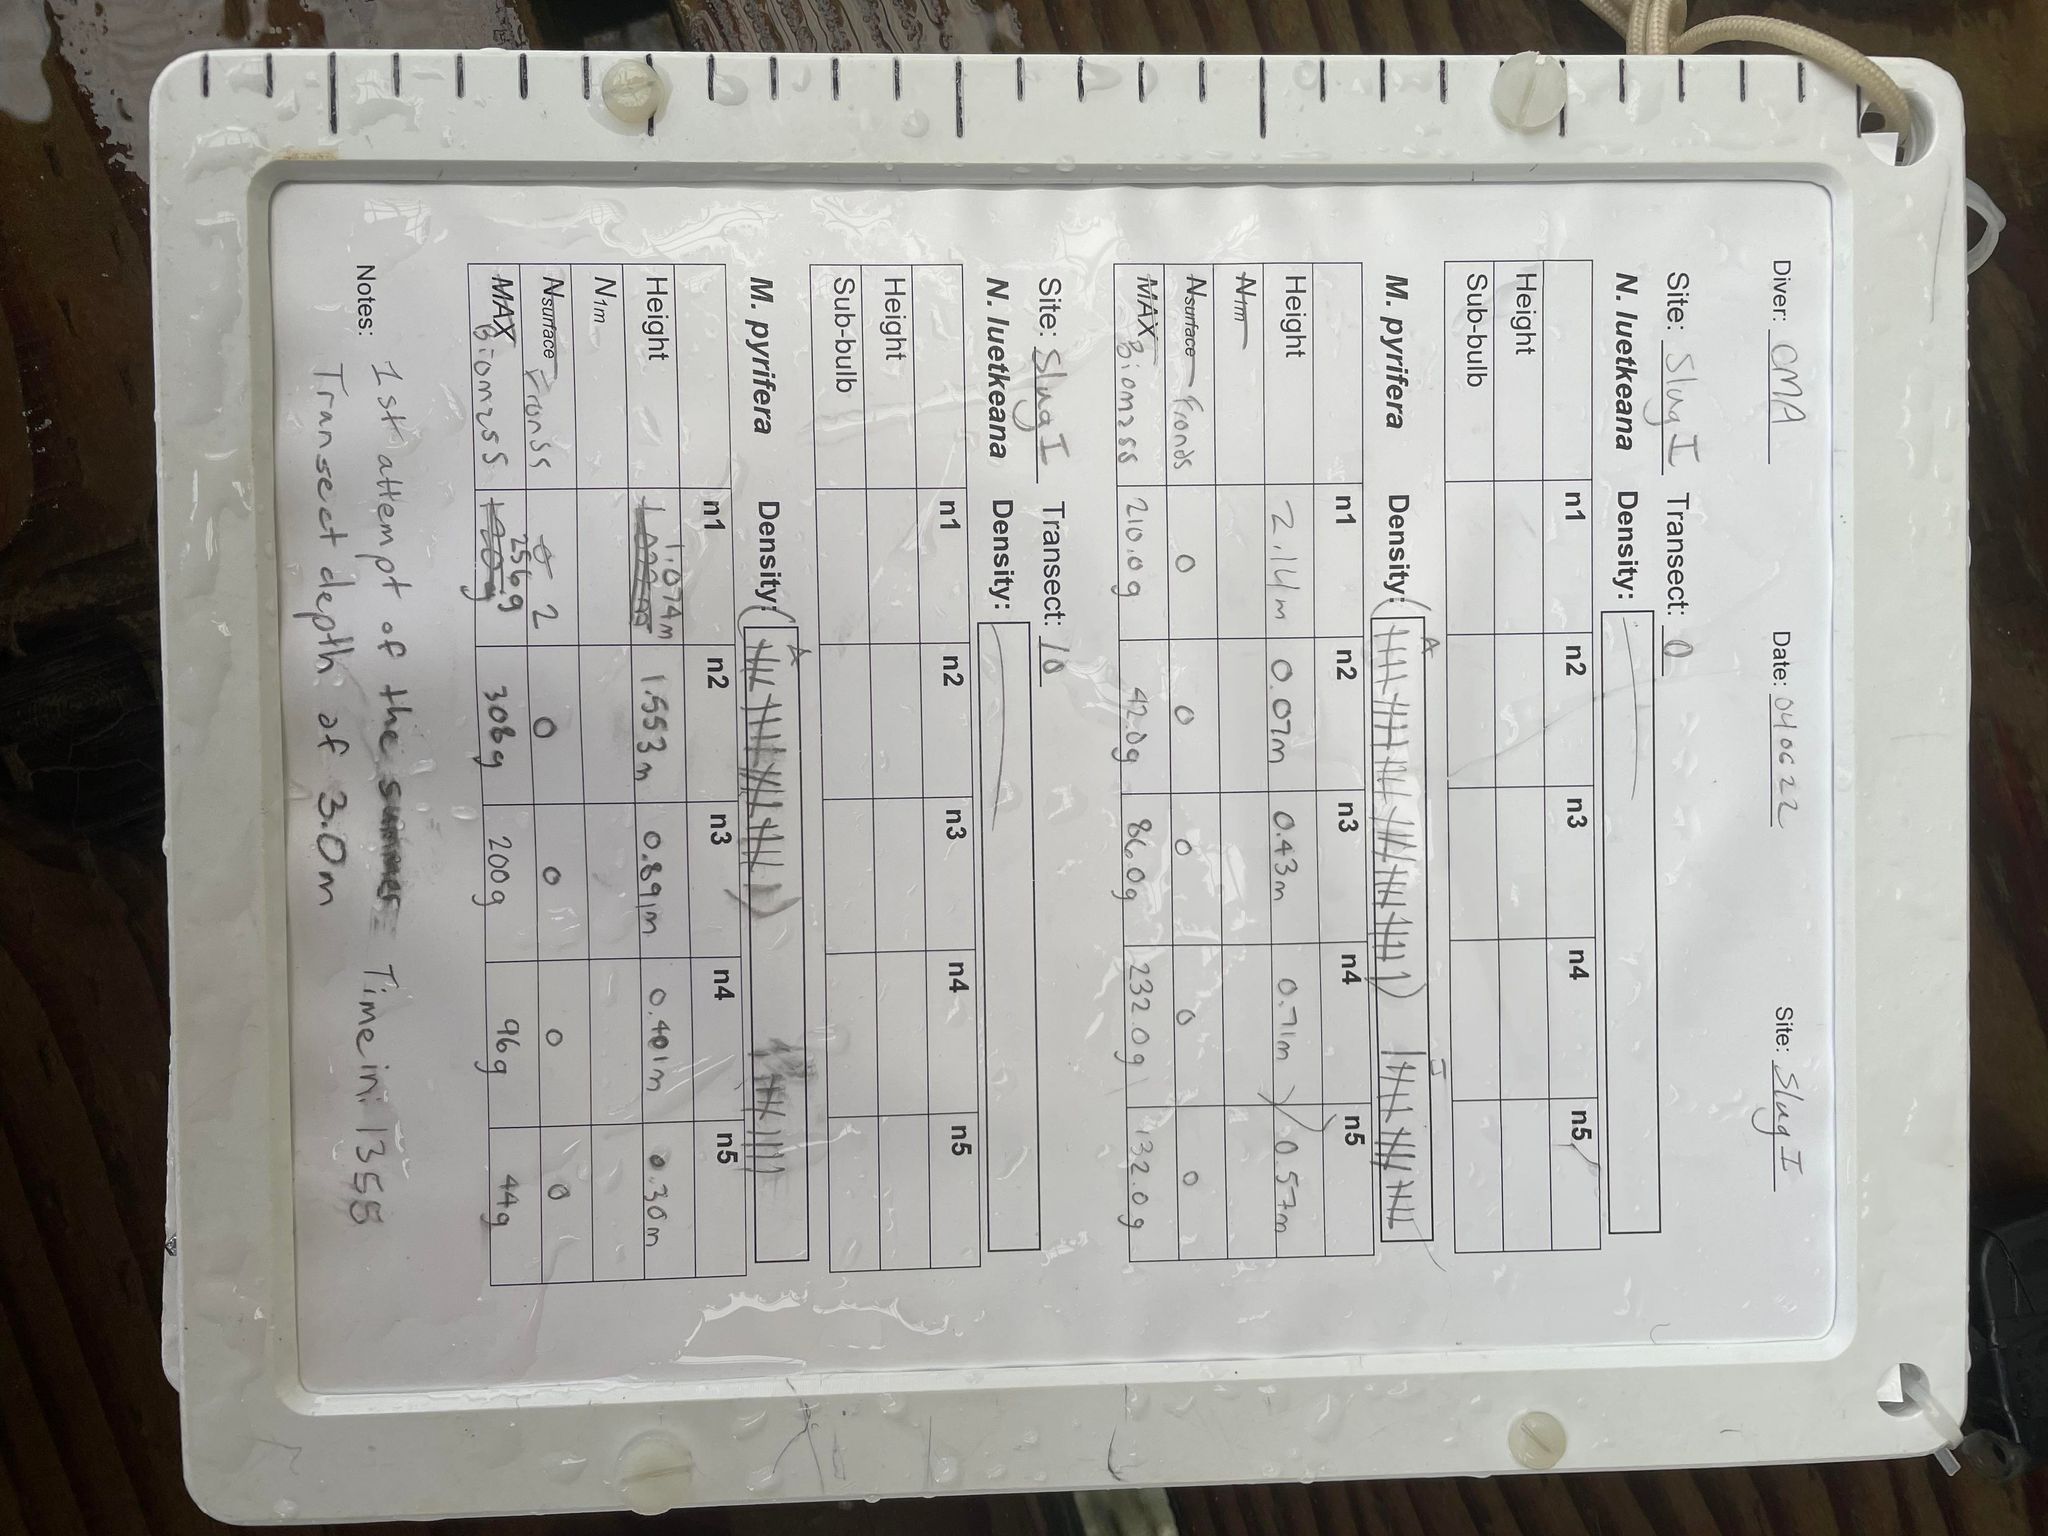 Diver: CMA Date: 040622 Site: Slug I
Site: Slug I Transect: 0
N. luetkeana Density:
n1 n2 n3 n4 n5
Height
Sub-bulb
A J
M. pyrifera Density:
n1 n2 n3 n4 n5
Height 2.14m 0.07m 0.43m 0.71m 0.57m
N1m
Nsurface Fronds 0 0 0 0 0
MAX Biomass 210.0g 42.0g 86.0g 232.0g 132.0g
Site: Slug I Transect: 10
N. luetkeana Density:
n1 n2 n3 n4 n5
Height
Sub-bulb
A
M. pyrifera Density:
n1 n2 n3 n4 n5
1.074m
Height 1.553m 0.891m 0.401m 0.30m
N1m
Nsurface Fronds 0 2 0 0 0 0
256g
MAX Biomass 120g 308g 200g 96g 44g
Notes: 1st attempt of the summer Time in: 1355
Transect depth of 3.0m